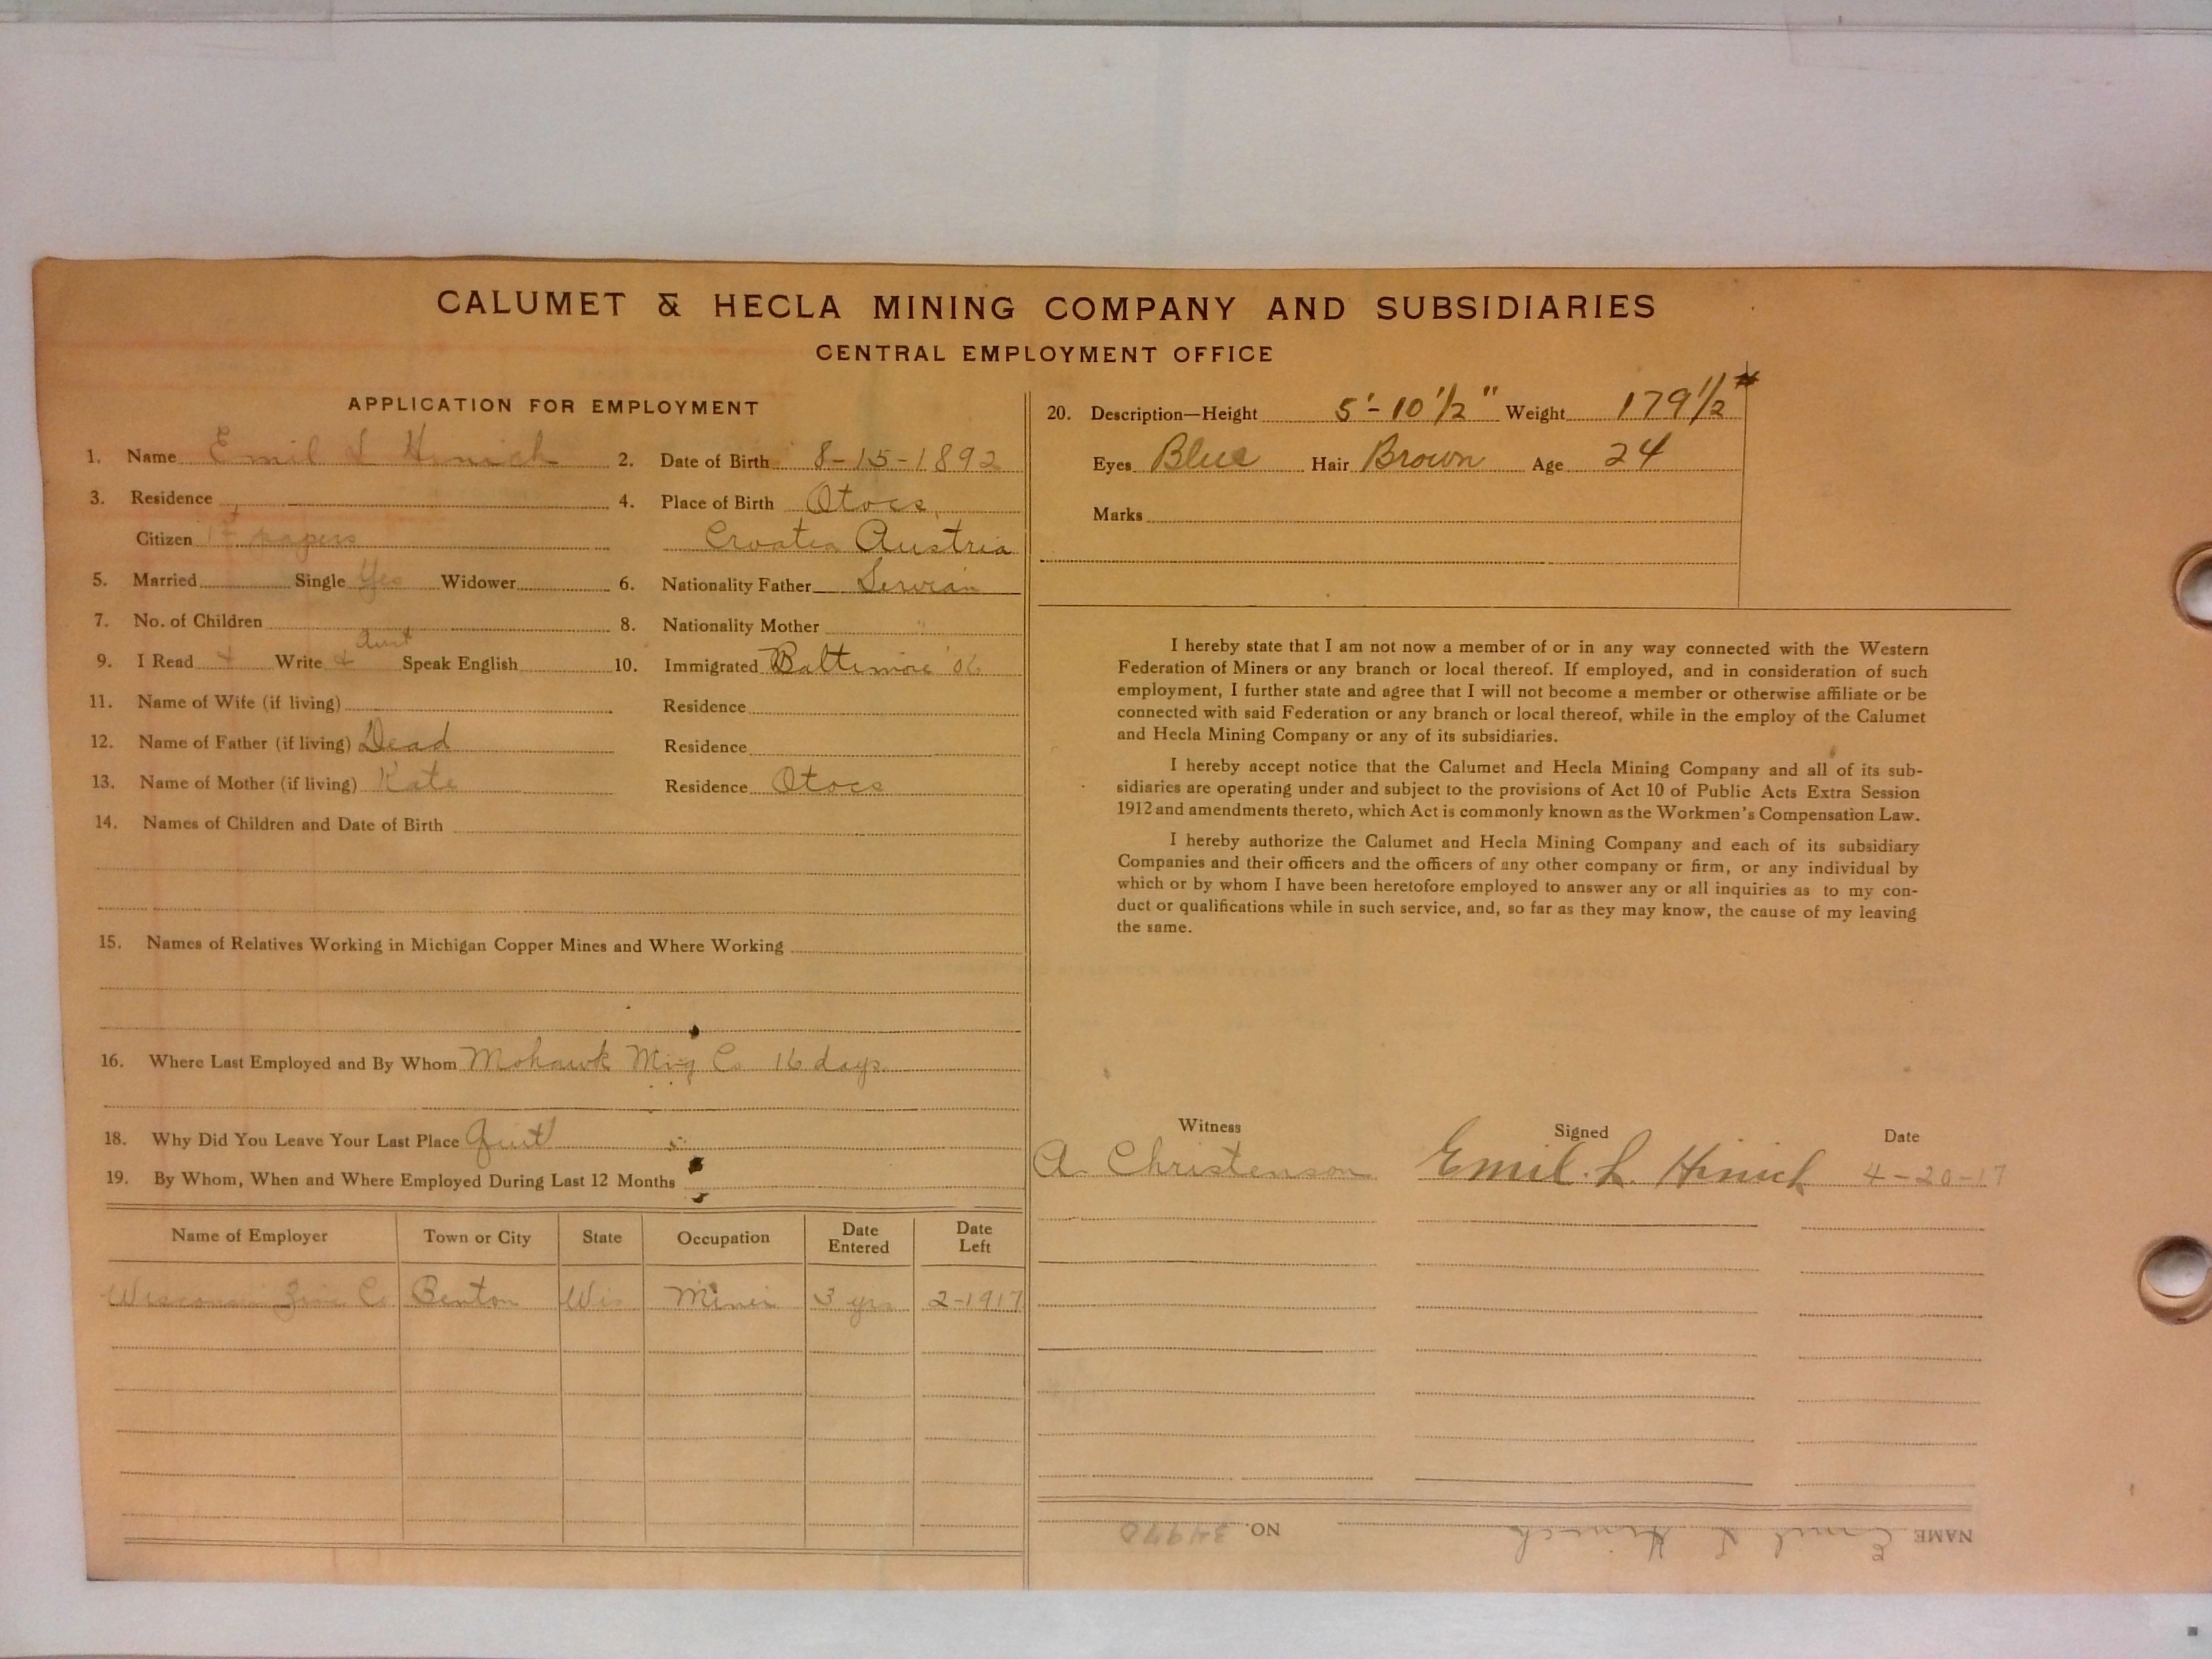 CALUMET & HECLA MINING COMPANY AND SUBSIDIARIES
CENTRAL EMPLOYMENT OFFICE
APPLICATION FOR EMPLOYMENT
1. Name Emil L Hinich 2. Date of Birth 8-15-1892
3. Residence 4. Place of Birth Otocs,
Citizen 1st papers Croatia Austria
5. Married Single Yes Widower 6. Nationality Father Servian
7. No. of Children 8. Nationality Mother "
9. I Read + Write + Aust Speak English 10. Immigrated Baltimore '06
11. Name of Wife (if living) Residence
12. Name of Father (if living) Dead Residence
13. Name of Mother (if living) Kate Residence Otocs
14. Names of Children and Date of Birth
15. Names of Relatives Working in Michigan Copper Mines and Where Working
16. Where Last Employed and By Whom Mohawk Mng Co 16 days
18. Why Did You Leave Your Last Place Quit
19. By Whom, When and Where Employed During Last 12 Months
Name of Employer Town or City State Occupation Date Entered Date Left
Wisconsin Zinc Co Benton Wis Miner 3 yrs 2-1917
20. Description—Height 5'-10 1/2" Weight 179 1/2 #
Eyes Blue Hair Brown Age 24
Marks
I hereby state that I am not now a member of or in any way connected with the Western
Federation of Miners or any branch or local thereof. If employed, and in consideration of such
employment, I further state and agree that I will not become a member or otherwise affiliate or be
connected with said Federation or any branch or local thereof, while in the employ of the Calumet
and Hecla Mining Company or any of its subsidiaries.
I hereby accept notice that the Calumet and Hecla Mining Company and all of its sub-
sidiaries are operating under and subject to the provisions of Act 10 of Public Acts Extra Session
1912 and amendments thereto, which Act is commonly known as the Workmen's Compensation Law.
I hereby authorize the Calumet and Hecla Mining Company and each of its subsidiary
Companies and their officers and the officers of any other company or firm, or any individual by
which or by whom I have been heretofore employed to answer any or all inquiries as to my con-
duct or qualifications while in such service, and, so far as they may know, the cause of my leaving
the same.
Witness Signed Date
A. Christenson Emil. L. Hinich 4-20-17
NAME Emil L Hinich NO. 34970